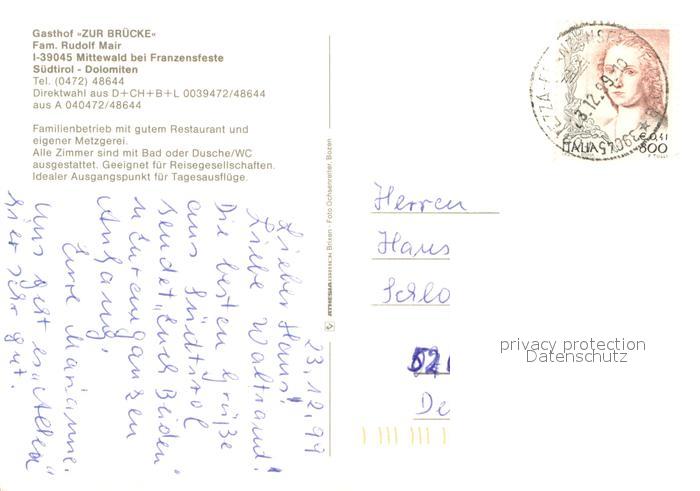 Gasthof «ZUR BRÜCKE»
Fam. Rudolf Mair
I-39045 Mittewald bei Franzensfeste
Südtirol - Dolomiten
Tel. (0472) 48644
Direktwahl aus D+CH+B+L 0039472/48644
aus A 040472/48644
Familienbetrieb mit gutem Restaurant und
eigener Metzgerei.
Alle Zimmer sind mit Bad oder Dusche/WC
ausgestattet. Geeignet für Reisegesellschaften.
Idealer Ausgangspunkt für Tagesausflüge.
23.12.99
Lieber Hans!
Liebe Waltraud!
Die besten Grüße
aus Südtirol
sendet Euch Beiden
u. Eurem ganzen
Anhang,
Eure Marianne.
Uns geht es "Allen"
hier sehr gut.
ATHESIADRUCK Brixen - Foto Ochsenreiter, Bozen
Herren
Hans
Schlo
52
De
23.12.99
39045
ITALIA
€ 0,41
800
privacy protection
Datenschutz